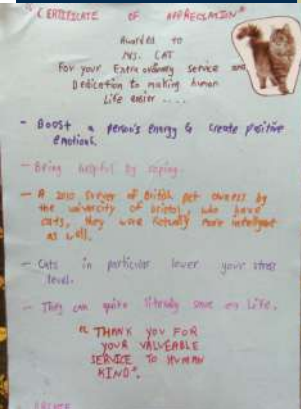 "CERTIFICATE OF APPRECIATION"
Awarded to
MS. CAT
For your Extra ordinary service and
Dedication to making human
Life easier ....
- Boost a person's energy & create positive
emotions.
- Being helpful by coping.
- A 2010 of British pet owners by
the university of bristol, who have
cats, they were actually more inteligent
as well.
- Cats in particular lower your stress
level.
- They can quite literally save Life.
" THANK YOU FOR
YOUR VALUEABLE
SERVICE TO HUMAN
KIND".